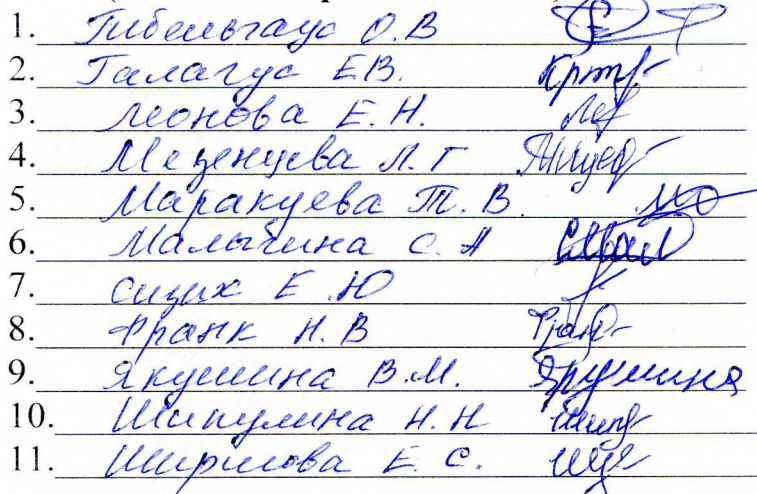 1. Гибельгаус О.В
2. Галагус Е.В.
3. Леонова Е.Н.
4. Мезенцева Л.Г
5. Маракуева Т.В.
6. Малыгина С.А
7. Сицих Е.Ю
8. Франк Н.В
9. Якушина В.М.
10. Шипулина Н.Н
11. Ширшова Е.С.